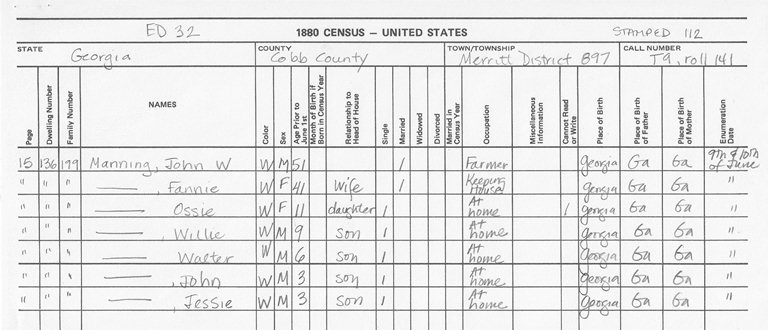 ED 32
1880 CENSUS – UNITED STATES
STAMPED 112
STATE Georgia COUNTY Cobb County TOWN/TOWNSHIP Merritt District 897 CALL NUMBER T9, roll 141
Page Dwelling Number Family Number NAMES Color Sex Age Prior to June 1st Month of Birth if Born in Census Year Relationship to Head of House Single Married Widowed Divorced Married in Census Year Occupation Miscellaneous Information Cannot Read or Write Place of Birth Place of Birth of Father Place of Birth of Mother Enumeration Date
15 136 199 Manning, John W W M 51 / Farmer georgia Ga Ga 9th & 10th of June
" " " —— , Fannie W F 41 wife / Keeping House georgia Ga Ga "
" " " —— Ossie W F 11 daughter 1 At home / georgia Ga Ga "
" " " —— , Willie W M 9 son 1 At home georgia Ga Ga "
" " " —— Walter W M 6 son 1 At home georgia Ga Ga "
" " " —— , John W M 3 son 1 At home georgia Ga Ga "
" " " —— , Jessie W M 3 son 1 At home georgia Ga Ga "